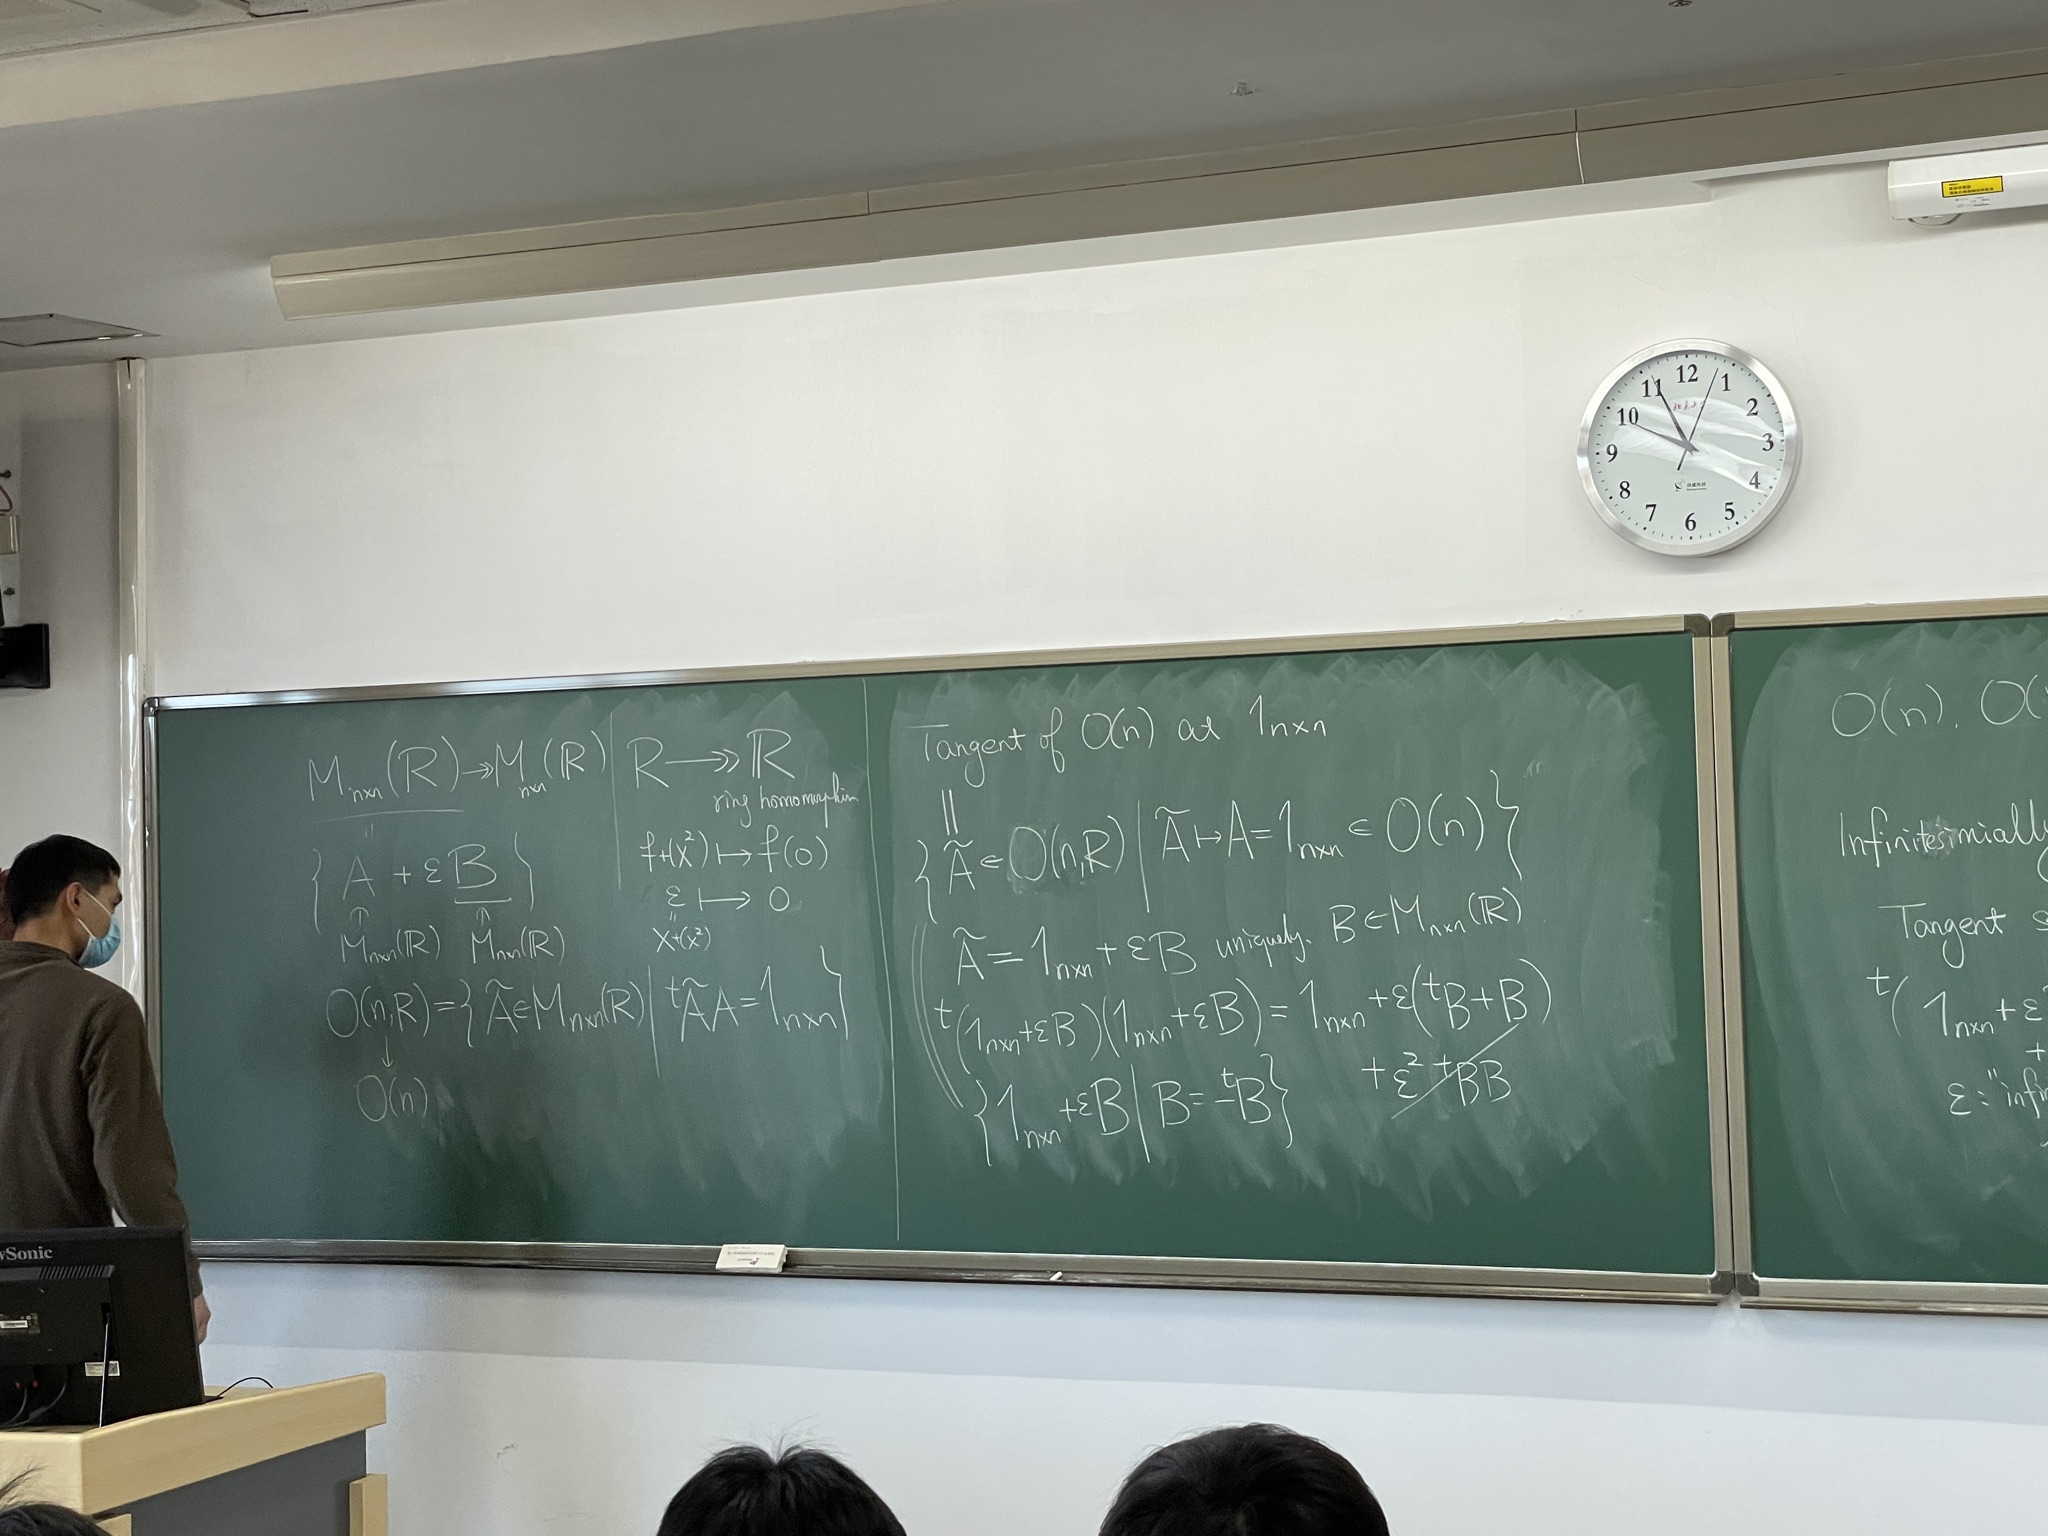 12
1
2
3
4
5
6
7
8
9
10
11
M_{n×n}(R) ↠ M_{n×n}(ℝ)
"
{ A + εB }
↑ ↑
M_{n×n}(ℝ) M_{n×n}(ℝ)
R ↠ ℝ
ring homomorphism
f+(x²) ↦ f(0)
ε ↦ 0
"
x+(x²)
O(n,R) = { Ã ∈ M_{n×n}(R) | ᵗÃA = 1_{n×n} }
↓
O(n)
Tangent of O(n) at 1_{n×n}
||
{ Ã ∈ O(n,R) | Ã ↦ A = 1_{n×n} ∈ O(n) }
Ã = 1_{n×n} + εB uniquely. B ∈ M_{n×n}(ℝ)
ᵗ(1_{n×n}+εB)(1_{n×n}+εB) = 1_{n×n} + ε(ᵗB+B)
+ ε² ᵗBB
{ 1_{n×n}+εB | B = -ᵗB }
O(n). O(
Infinitesimially
Tangent s
ᵗ( 1_{n×n} + ε
+
ε: "infin
wSonic